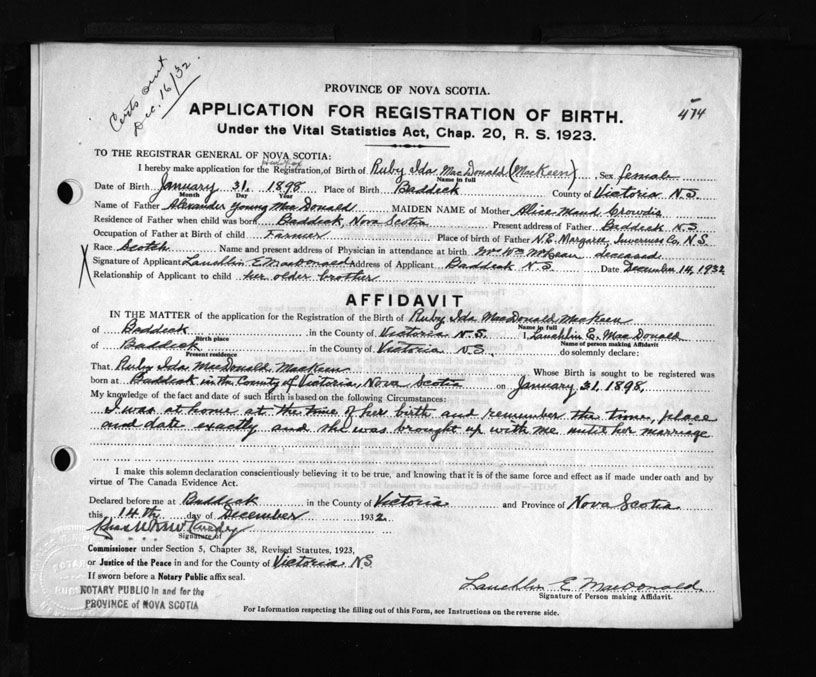 Certs sent
Dec. 16/32.
PROVINCE OF NOVA SCOTIA.
474
APPLICATION FOR REGISTRATION OF BIRTH.
Under the Vital Statistics Act, Chap. 20, R. S. 1923.
TO THE REGISTRAR GENERAL OF NOVA SCOTIA:
I hereby make application for the Registration, of Birth of Ruby Ida MacDonald (MacKeen) Sex female
Name in full
Date of Birth January 31. 1898 Place of Birth Baddeck County of Victoria N.S
Month Day Year
Name of Father Alexander Young MacDonald MAIDEN NAME of Mother Alice Maud Crowdis
Residence of Father when child was born Baddeck, Nova Scotia Present address of Father Baddeck N.S
Occupation of Father at Birth of child Farmer Place of birth of Father N.E. Margaree, Inverness Co. N.S.
Race Scotch Name and present address of Physician in attendance at birth Mrs Wm McKean deceased
Signature of Applicant Lauchlin E MacDonald Address of Applicant Baddeck N.S Date December 14, 1932
Relationship of Applicant to child her older brother
AFFIDAVIT
IN THE MATTER of the application for the Registration of the Birth of Ruby Ida MacDonald MacKeen
Name in full
of Baddeck in the County of Victoria N.S. I, Lauchlin E. MacDonald
Birth place Name of person making Affidavit
of Baddeck in the County of Victoria N.S., do solemnly declare:
Present residence
That Ruby Ida MacDonald MacKeen Whose Birth is sought to be registered was
born at Baddeck in the County of Victoria, Nova Scotia on January 31. 1898,
My knowledge of the fact and date of such Birth is based on the following Circumstances:
I was at home at the time of her birth and remember the time, place
and date exactly and she was brought up with me until her marriage
I make this solemn declaration conscientiously believing it to be true, and knowing that it is of the same force and effect as if made under oath and by
virtue of The Canada Evidence Act.
Declared before me at Baddeck in the County of Victoria and Province of Nova Scotia
this 14th day of December 1932
Signature of
Commissioner under Section 5, Chapter 38, Revised Statutes, 1923,
or Justice of the Peace in and for the County of Victoria N.S.
If sworn before a Notary Public affix seal.
NOTARY PUBLIC In and for the
PROVINCE OF NOVA SCOTIA
Lauchlin E MacDonald
Signature of Person making Affidavit.
For Information respecting the filling out of this Form, see Instructions on the reverse side.